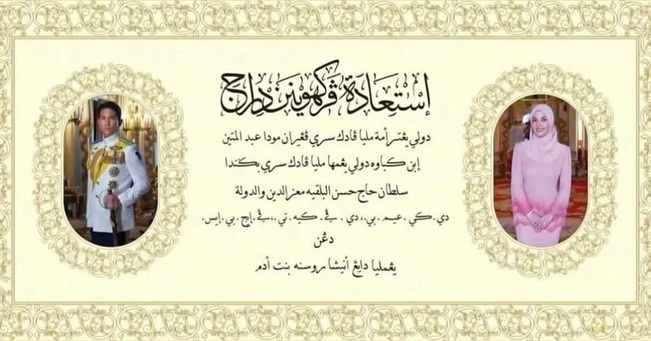 إستعادة ڤركهوينن دراج
دولي يڠترأمة مليا ڤادك سري ڤڠيران مودا عبد المتين
إبن كباوه دولي يڠمها مليا ڤادك سري بݢندا
سلطان حاج حسن البلقيه معز الدين والدولة
دي. كي. عيم. بي.، دي. ڤي. كيه. تي.، ڤي. إيچ. بي. إيس.
دڠن
يڠمليا دايڠ أنيشا روسنه بنت أدم